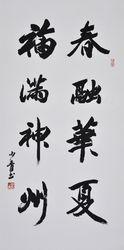 春融華夏
福满神州